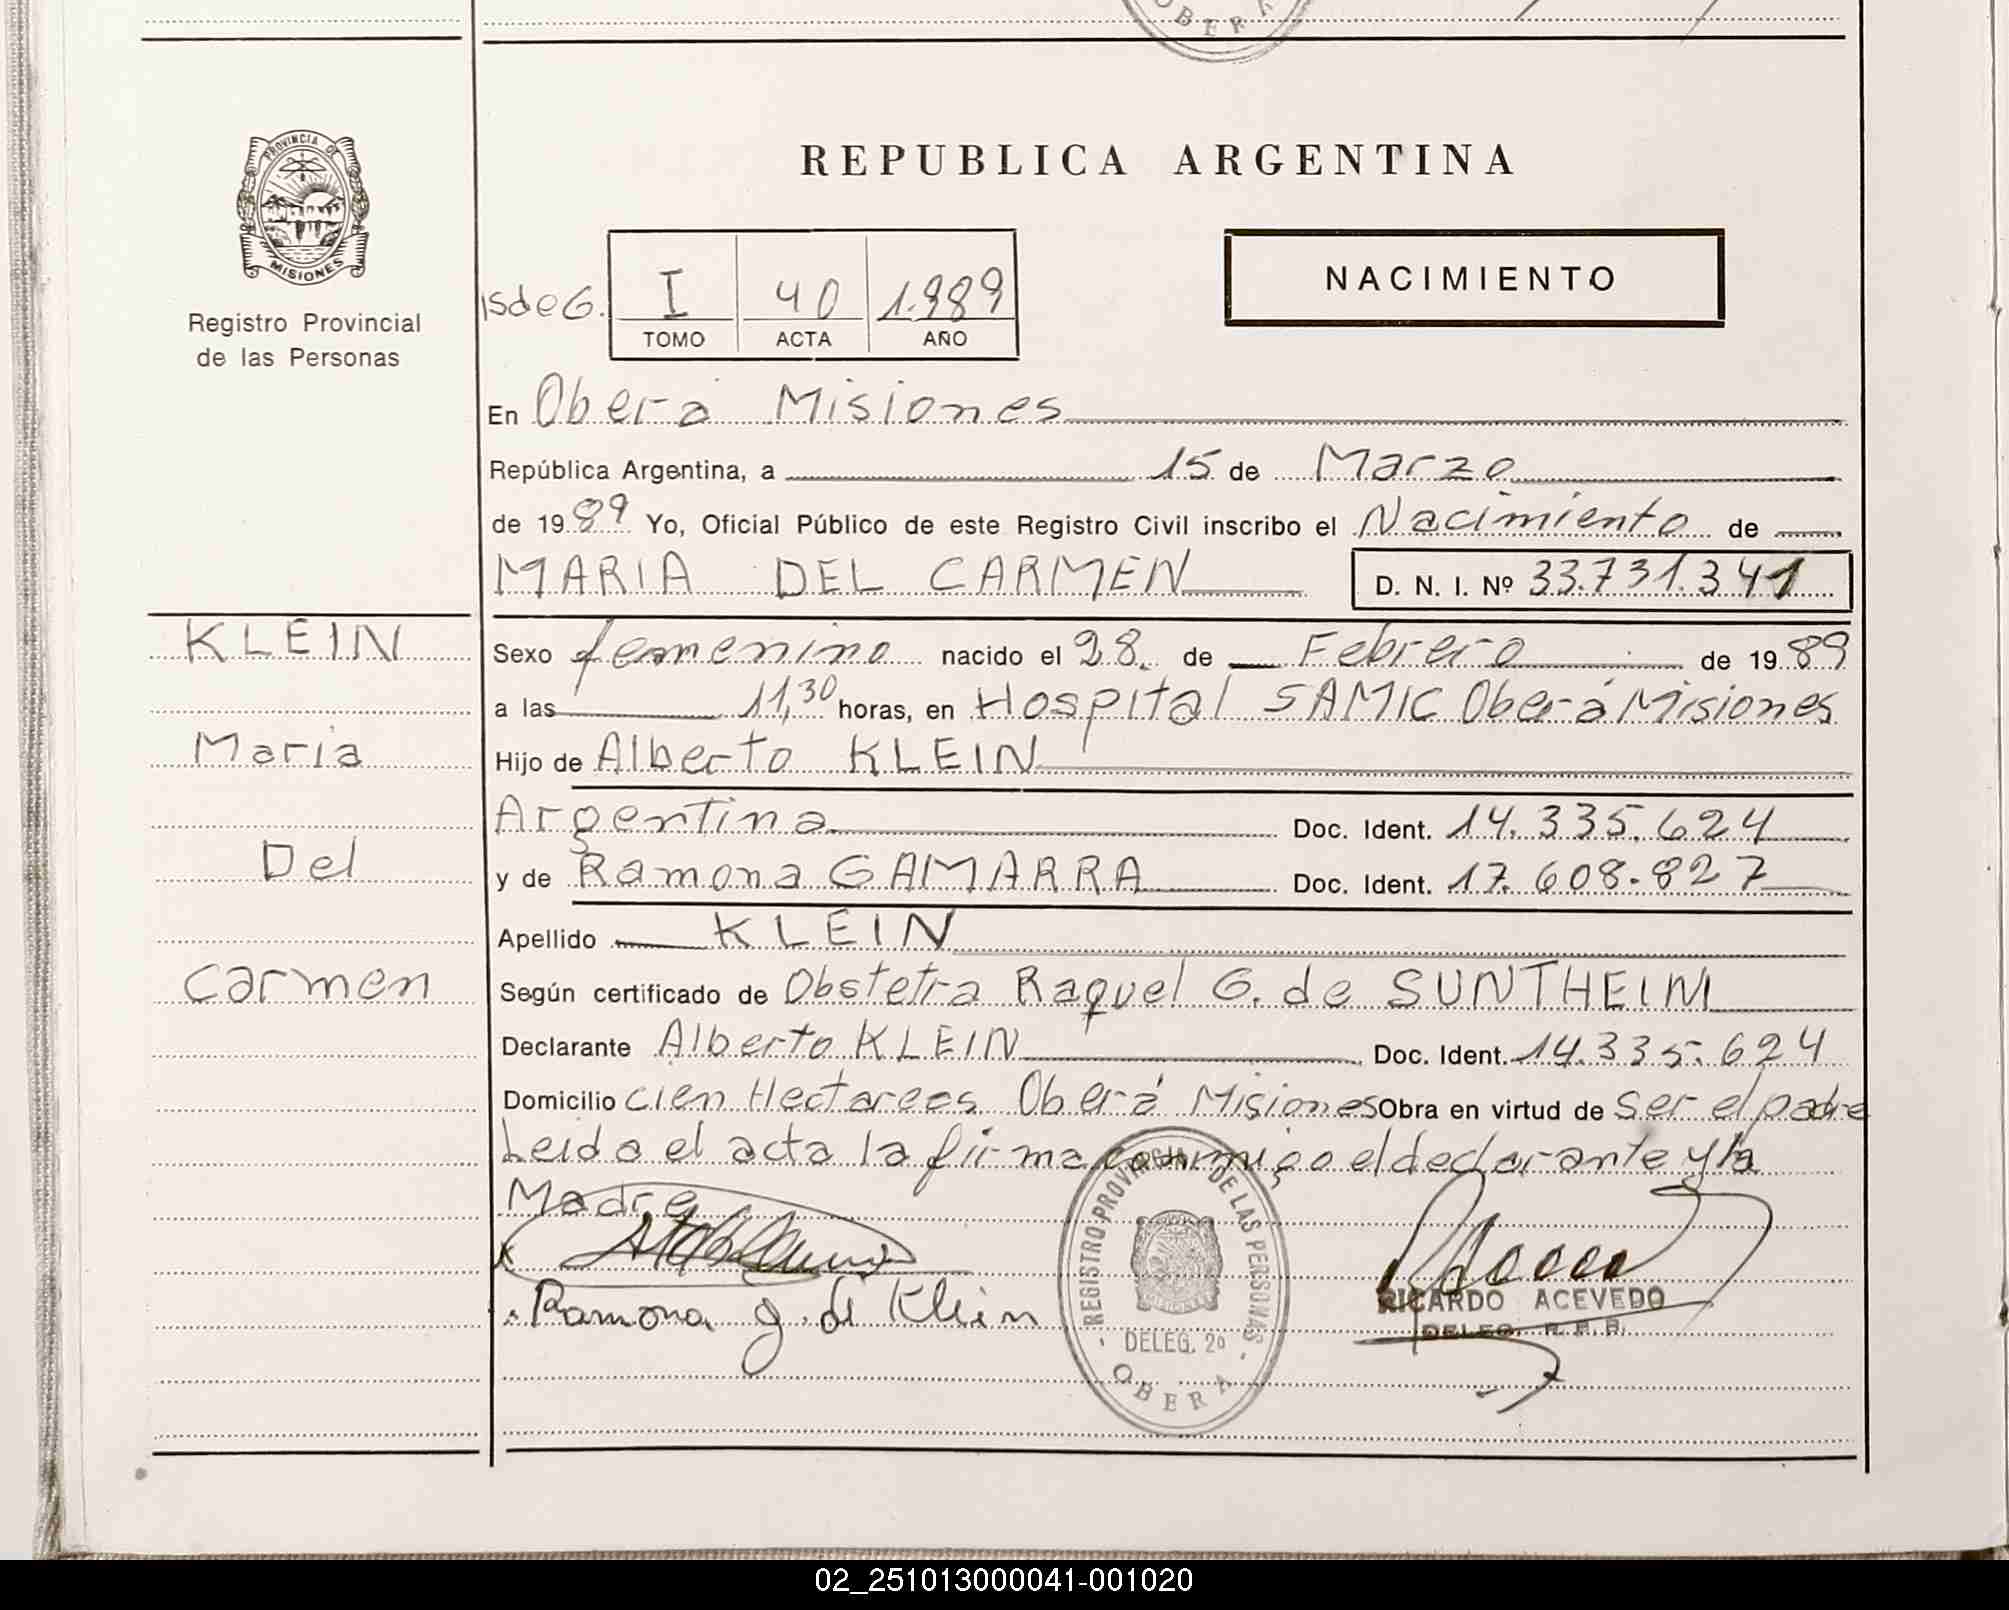 OBERA
PROVINCIA DE
MISIONES
Registro Provincial
de las Personas
REPUBLICA ARGENTINA
NACIMIENTO
I 40 1.989
TOMO ACTA AÑO
En Oberá Misiones
República Argentina, a 15 de Marzo
de 1989 Yo, Oficial Público de este Registro Civil inscribo el Nacimiento de
MARIA DEL CARMEN D. N. I. Nº 33.731.341
KLEIN
Maria
Del
Carmen
Sexo femenino nacido el 28. de Febrero de 1989
a las 11,30 horas, en Hospital SAMIC Oberá Misiones
Hijo de Alberto KLEIN
Argentina Doc. Ident. 14.335.624
y de Ramona GAMARRA Doc. Ident. 17.608.827
Apellido KLEIN
Según certificado de Obstetra Raquel G. de SUNTHEIM
Declarante Alberto KLEIN Doc. Ident. 14.335.624
Domicilio cien Hectareas Oberá Misiones Obra en virtud de ser el padre
Leida el acta la firma conmigo el declarante y la
Madre
Ramona g. de Klein
REGISTRO PROVINCIAL DE LAS PERSONAS
DELEG. 2º
OBERA
RICARDO ACEVEDO
DELEG. R. P. P.
02_251013000041-001020